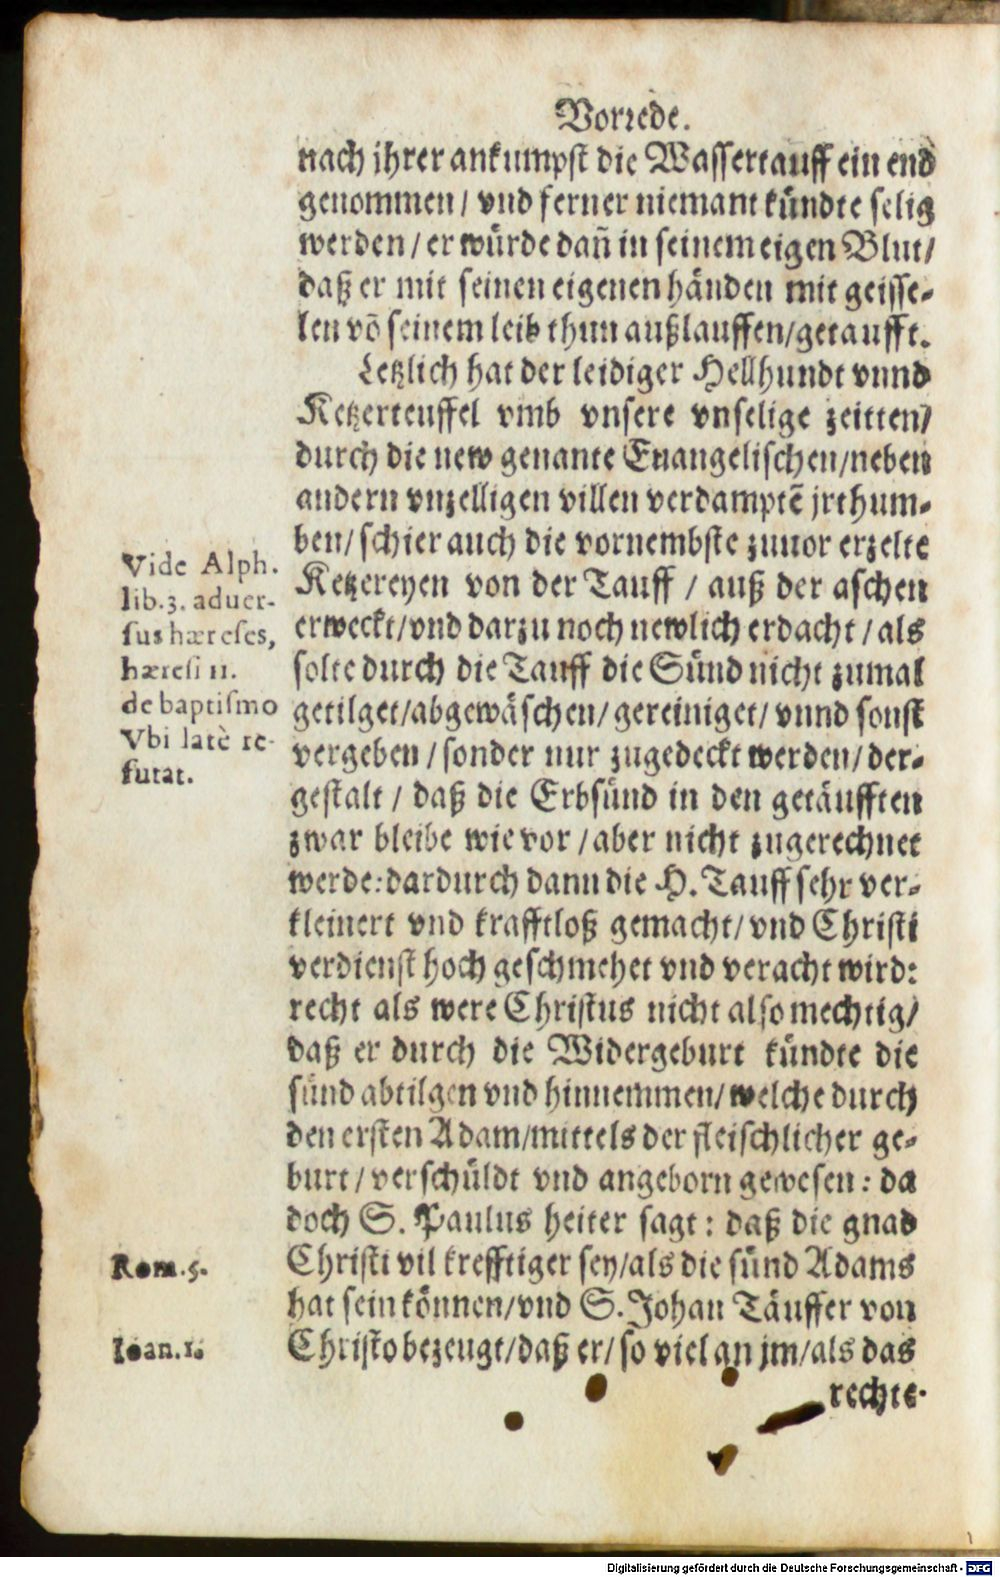 Vorrede.
nach ihrer ankumpst die Wassertauff ein end
genommen / vnd ferner niemant kündte selig
werden / er würde dañ in seinem eigen Blut/
daß er mit seinen eigenen händen mit geisse-
len võ seinem leib thun außlauffen/getaufft.
Letzlich hat der leidiger Hellhundt vnnd
Ketzerteuffel vmb vnsere vnselige zeitten/
durch die new genante Euangelischen/neben
andern vnzelligen villen verdamptẽ jrthum-
ben/ schier auch die vornembste zuuor erzelte
Ketzereyen von der Tauff / auß der aschen
erweckt/vnd darzu noch newlich erdacht / als
solte durch die Tauff die Sünd nicht zumal
getilget/abgewäschen/ gereiniget/ vnnd sonst
vergeben / sonder nur zugedeckt werden/ der-
gestalt / daß die Erbsünd in den getäufften
zwar bleibe wie vor / aber nicht zugerechnet
werde: dardurch dann die H. Tauff sehr ver-
kleinert vnd krafftloß gemacht/ vnd Christi
verdienst hoch geschmehet vnd veracht wird:
recht als were Christus nicht also mechtig/
daß er durch die Widergeburt kündte die
sünd abtilgen vnd hinnemmen/ welche durch
den ersten Adam/mittels der fleischlicher ge-
burt / verschüldt vnd angeborn gewesen : da
doch S. Paulus heiter sagt : daß die gnad
Christi vil krefftiger sey/als die sünd Adams
hat sein können/vnd S. Johan Täuffer von
Christo bezeugt/daß er/ so viel an jm/als das
rechte
Vide Alph.
lib.3. aduer-
sus hæreses,
hæresi 11.
de baptismo
Vbi latè re-
futat.
Rom.5.
Ioan.1.
Digitalisierung gefördert durch die Deutsche Forschungsgemeinschaft - DFG